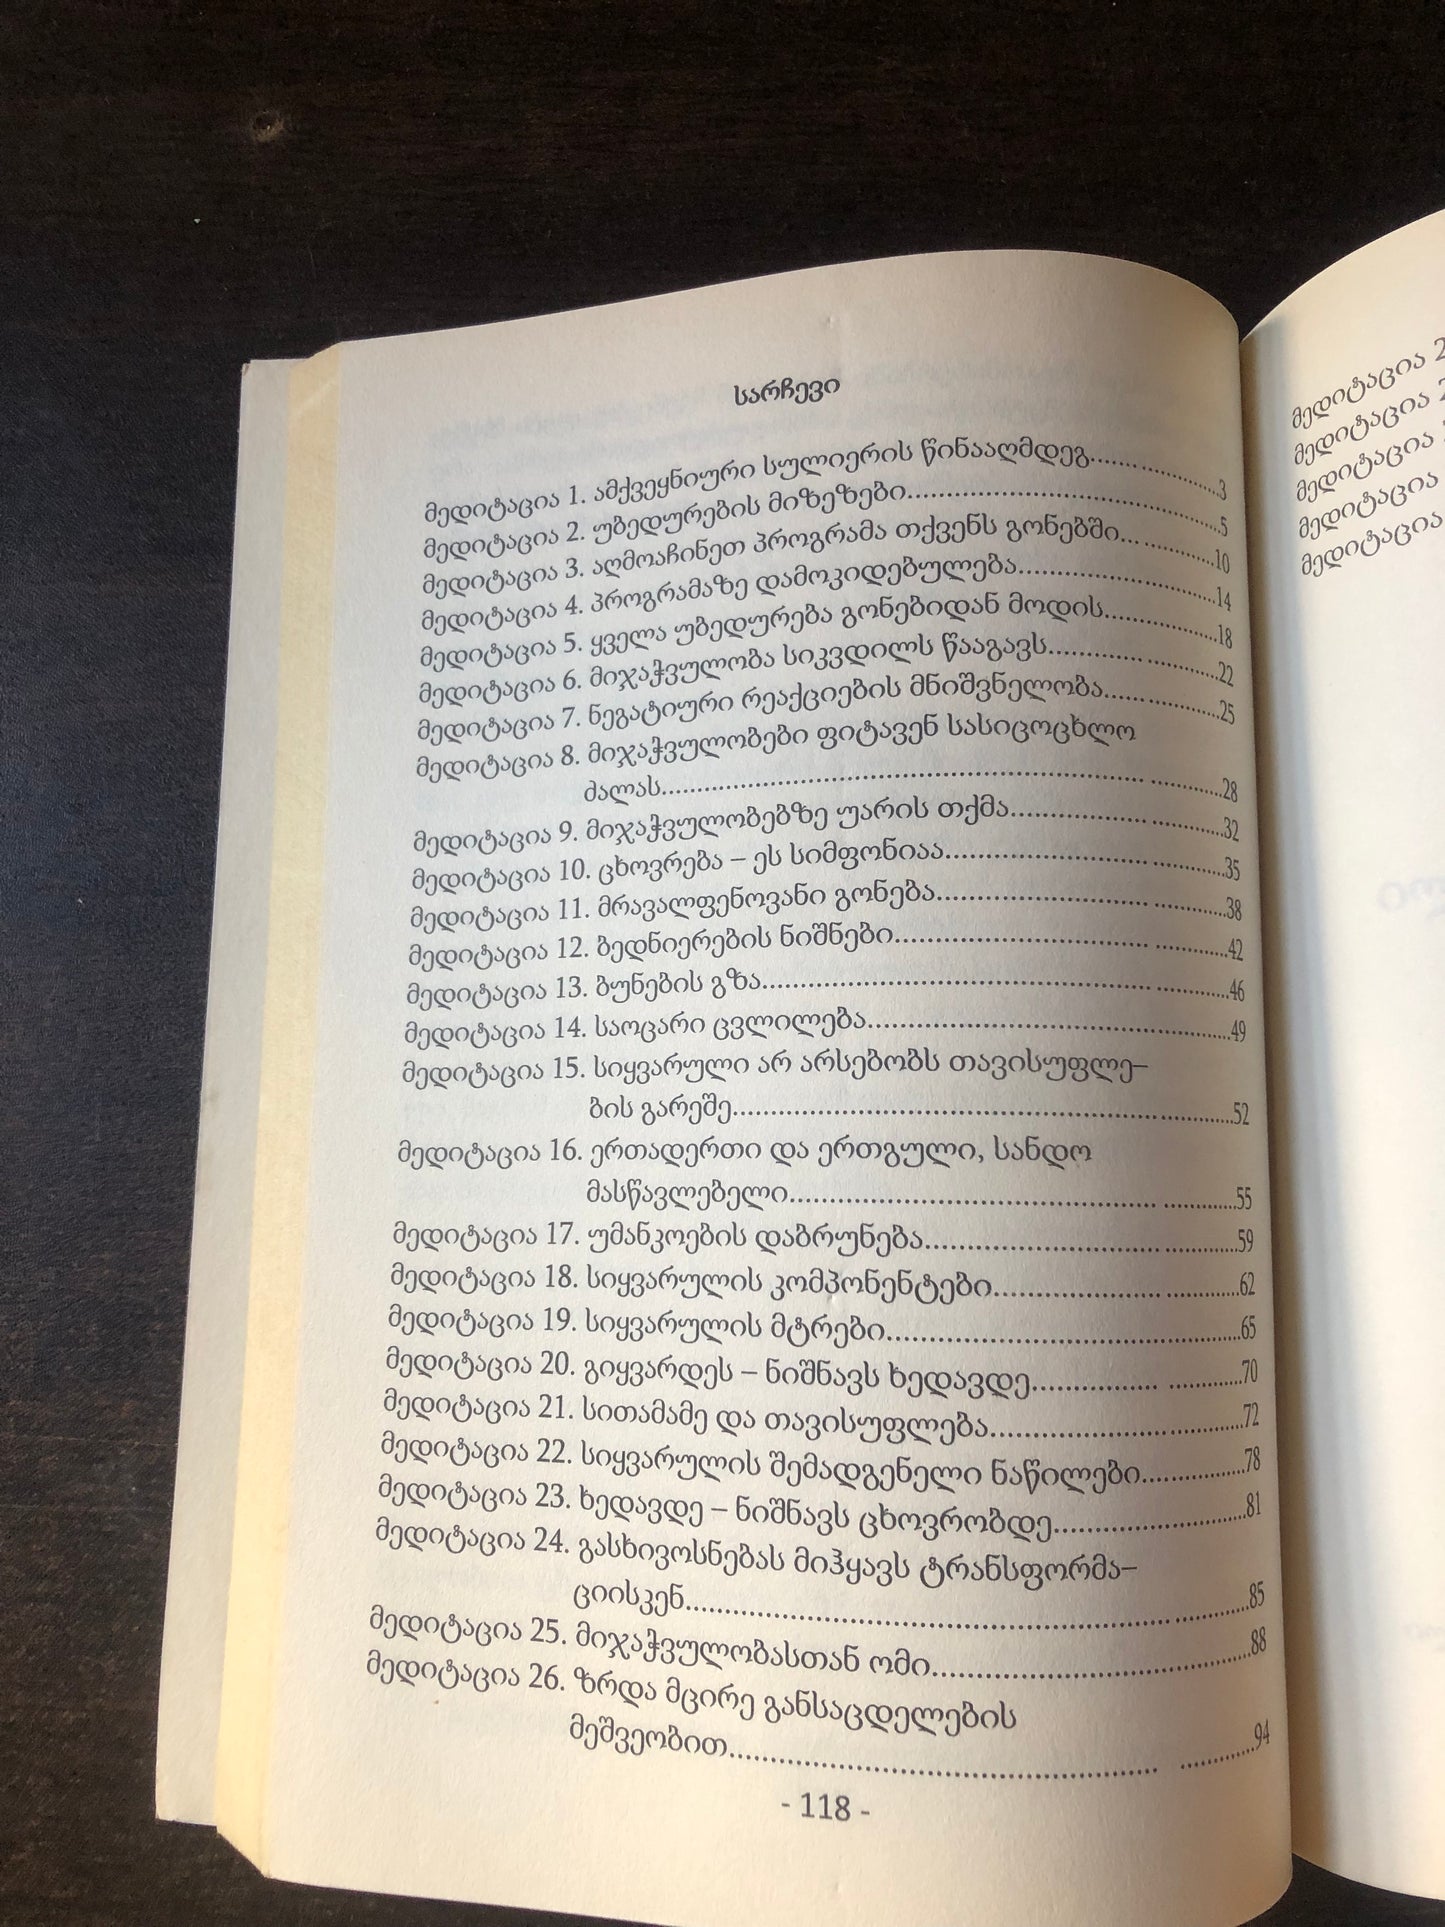 სარჩევი
მედიტაცია 1. ამქვეყნიური სულიერის წინააღმდეგ..............3
მედიტაცია 2. უბედურების მიზეზები..............5
მედიტაცია 3. აღმოაჩინეთ პროგრამა თქვენს გონებში..............10
მედიტაცია 4. პროგრამაზე დამოკიდებულება..............14
მედიტაცია 5. ყველა უბედურება გონებიდან მოდის..............18
მედიტაცია 6. მიჯაჭვულობა სიკვდილს წააგავს..............22
მედიტაცია 7. ნეგატიური რეაქციების მნიშვნელობა..............25
მედიტაცია 8. მიჯაჭვულობები ფიტავენ სასიცოცხლო
ძალას..............28
მედიტაცია 9. მიჯაჭვულობებზე უარის თქმა..............32
მედიტაცია 10. ცხოვრება – ეს სიმფონიაა..............35
მედიტაცია 11. მრავალფენოვანი გონება..............38
მედიტაცია 12. ბედნიერების ნიშნები..............42
მედიტაცია 13. ბუნების გზა..............46
მედიტაცია 14. საოცარი ცვლილება..............49
მედიტაცია 15. სიყვარული არ არსებობს თავისუფლე–
ბის გარეშე..............52
მედიტაცია 16. ერთადერთი და ერთგული, სანდო
მასწავლებელი..............55
მედიტაცია 17. უმანკოების დაბრუნება..............59
მედიტაცია 18. სიყვარულის კომპონენტები..............62
მედიტაცია 19. სიყვარულის მტრები..............65
მედიტაცია 20. გიყვარდეს – ნიშნავს ხედავდე..............70
მედიტაცია 21. სითამამე და თავისუფლება..............72
მედიტაცია 22. სიყვარულის შემადგენელი ნაწილები..............78
მედიტაცია 23. ხედავდე – ნიშნავს ცხოვრობდე..............81
მედიტაცია 24. გასხივოსნებას მიჰყავს ტრანსფორმა–
ციისკენ..............85
მედიტაცია 25. მიჯაჭვულობასთან ომი..............88
მედიტაცია 26. ზრდა მცირე განსაცდელების
მეშვეობით..............94
- 118 -
მედიტაცია 2
მედიტაცია
მედიტაცია
მედიტაცია
მედიტაცია